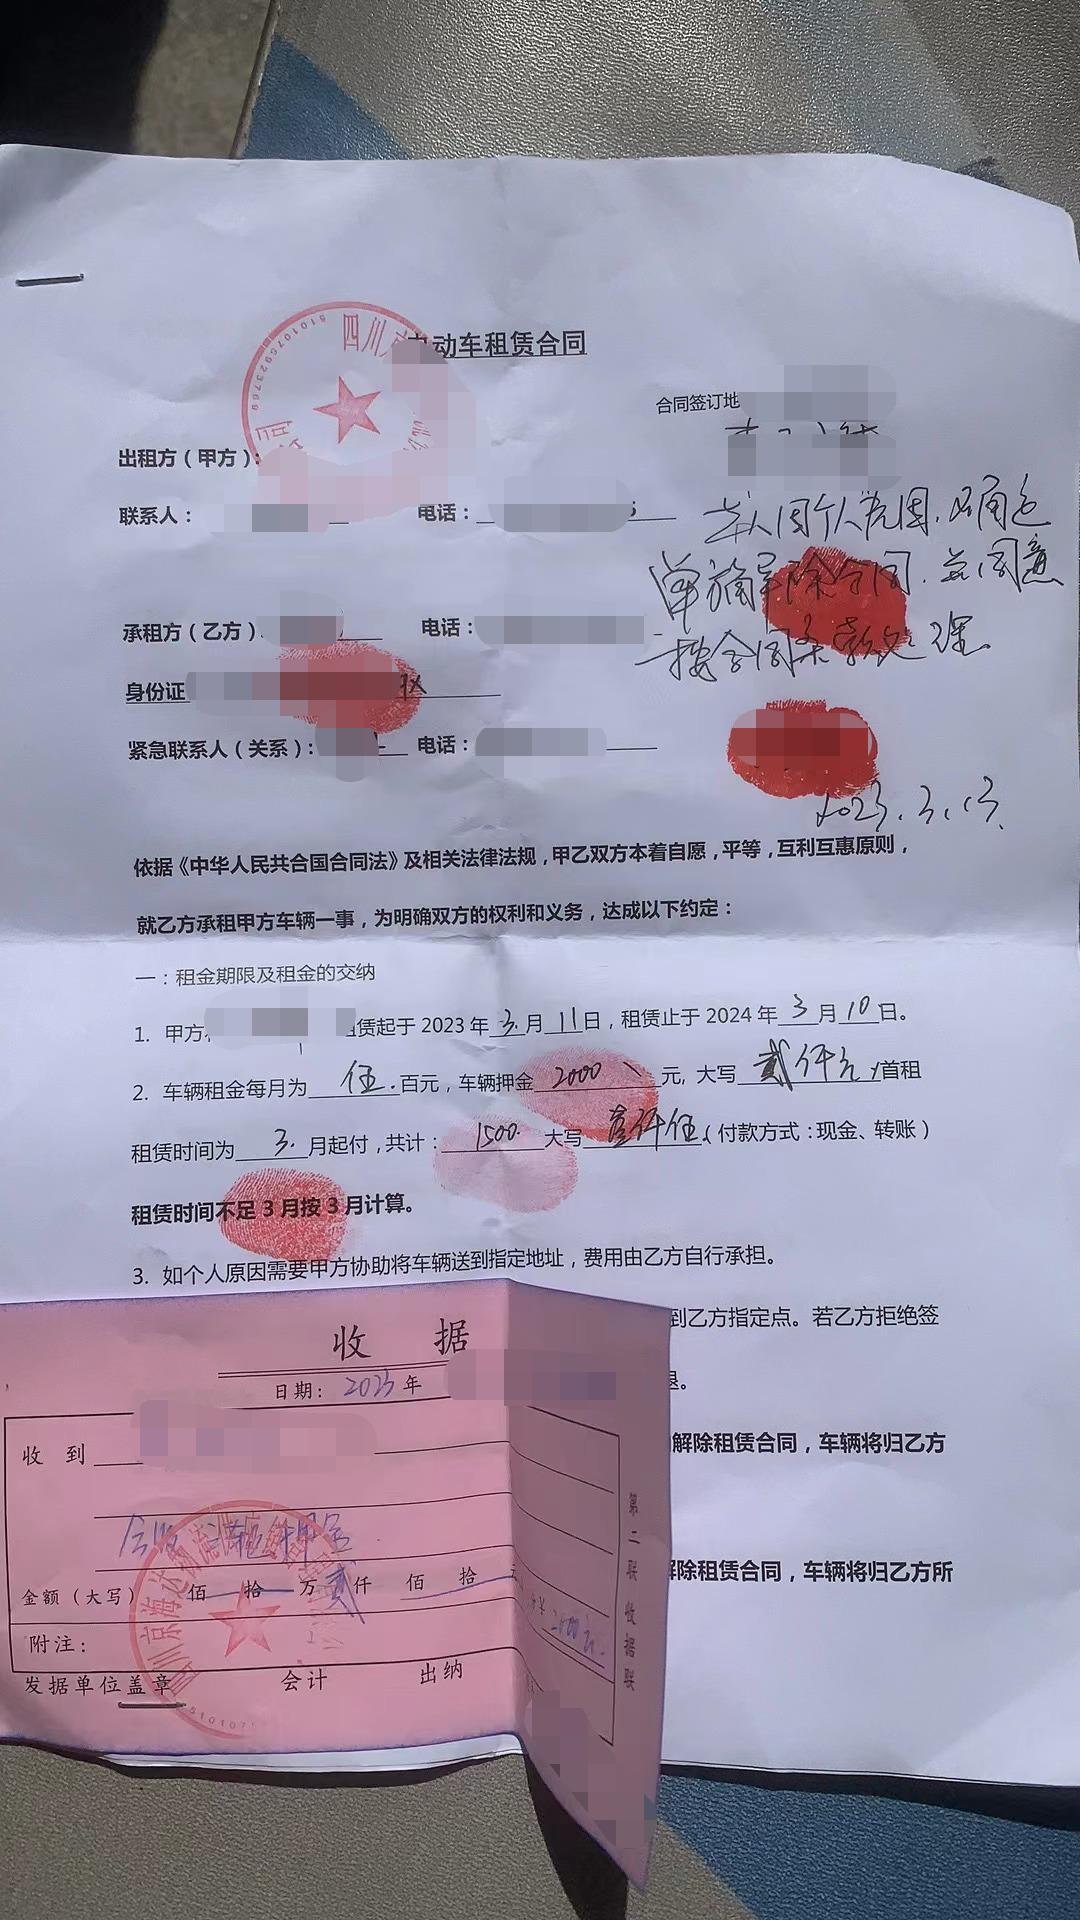 四川
5101075923769
司
电动车租赁合同
合同签订地
出租方（甲方）：
联系人： 电话：
本人因个人原因，
单方解除合同，并同意
按合同条款处理
承租方（乙方） 电话：
身份证
紧急联系人（关系）： 电话：
2023.3.13
依据《中华人民共合国合同法》及相关法律法规，甲乙双方本着自愿，平等，互利互惠原则，
就乙方承租甲方车辆一事，为明确双方的权利和义务，达成以下约定：
一：租金期限及租金的交纳
1. 甲方 租赁起于 2023 年 3. 月 11 日，租赁止于 2024 年 3 月 10 日。
2. 车辆租金每月为 伍. 百元，车辆押金 2000 元, 大写 贰仟元 /首租
租赁时间为 3. 月起付，共计： 1500. 大写 壹仟伍 （付款方式：现金、转账）
租赁时间不足 3 月按 3 月计算。
3. 如个人原因需要甲方协助将车辆送到指定地址，费用由乙方自行承担。
到乙方指定点。若乙方拒绝签
退。
解除租赁合同，车辆将归乙方
解除租赁合同，车辆将归乙方所
收 据
日期： 2023 年
收 到
押金
金额（大写） 佰 拾 万 贰 仟 佰 拾 元
附注：
发据单位盖章 会计 出纳
第二联 收据联
四川京海达物流
510107